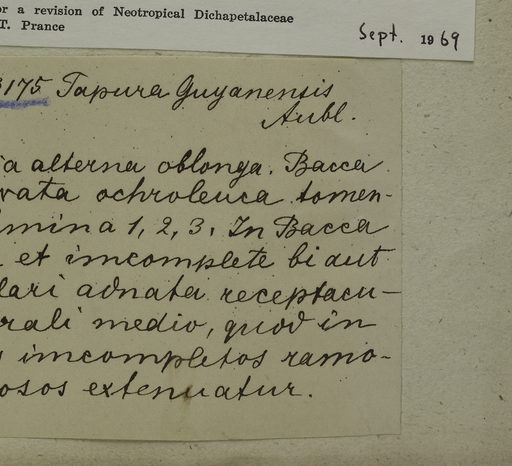 or a revision of Neotropical Dichapetalaceae
T. Prance
Sept. 1969
3175 Tapura Guyanensis
Aubl.
ia alterna oblonga. Bacca
vata ochroleuca tomen-
mina 1, 2, 3. In Bacca
et imcomplete bi aut
lari adnata receptacu-
rali medio, quod in
s imcompletos ramo-
osos extenuatur.